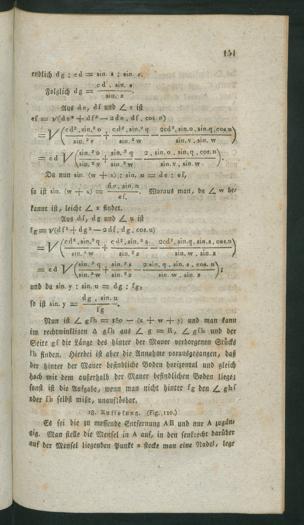 151
endlich dg : cd = sin. s : sin. e.
Folglich dg = cd . sin. s / sin. z .
Aus de, df und ∠ n ist
ef = √(de² + df² − 2de . df . cos n)
= √(cd² . sin.² o / sin.² v + cd² . sin.² q / sin.² w − 2cd² . sin. o . sin. q . cos. n / sin. v . sin. w)
= cd √(sin.² o / sin.² v + sin.² q / sin.² w − 2 . sin. o . sin. q . cos. n / sin. v . sin. w) .
Da nun sin. (w + x) : sin. n = de : ef,
so ist sin. (w + x) = de . sin. n / ef . Woraus man, da ∠ w be-
kannt ist, leicht ∠ x findet.
Aus df, dg und ∠ u ist
fg = √(df² + dg² − 2df . dg . cos. u)
= √(cd² . sin.² q / sin.² w + cd² . sin.² s / sin.² z − 2cd² . sin. q . sin. s . cos. u / sin. w . sin. z)
= cd √(sin.² q / sin.² w + sin.² s / sin.² z − 2 sin. q . sin. s . cos. u / sin. w . sin. z) ;
und da sin. y : sin. u = dg : fg,
so ist sin. y = dg . sin. u / fg .
Nun ist ∠ gfh = 180 − (x + w + y) und man kann
im rechtwinkligen Δ gfh aus ∠ g = R, ∠ gfh und der
Seite gf die Länge des hinter der Mauer verborgenen Stücks
fh finden. Hierbei ist aber die Annahme vorausgegangen, daß
der hinter der Mauer befindliche Boden horizontal und gleich
hoch mit dem außerhalb der Mauer befindlichen Boden liege;
sonst ist die Aufgabe, wenn man nicht hinter fg den ∠ ghf
oder fh selbst mißt, unauflösbar.
28. Auflösung. (Fig. 110.)
Es sei die zu messende Entfernung AB und nur A zugän-
gig. Man stelle die Mensel in A auf, in den senkrecht darüber
auf der Mensel liegenden Punkt a stecke man eine Nadel, lege